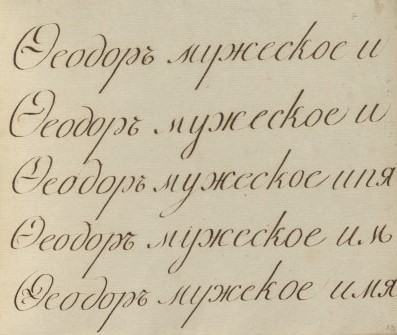 Ѳеодоръ мужеское и
Ѳеодоръ мужеское и
Ѳеодоръ мужеское ипя
Ѳеодоръ мужеское им
Ѳеодоръ мужекое имя